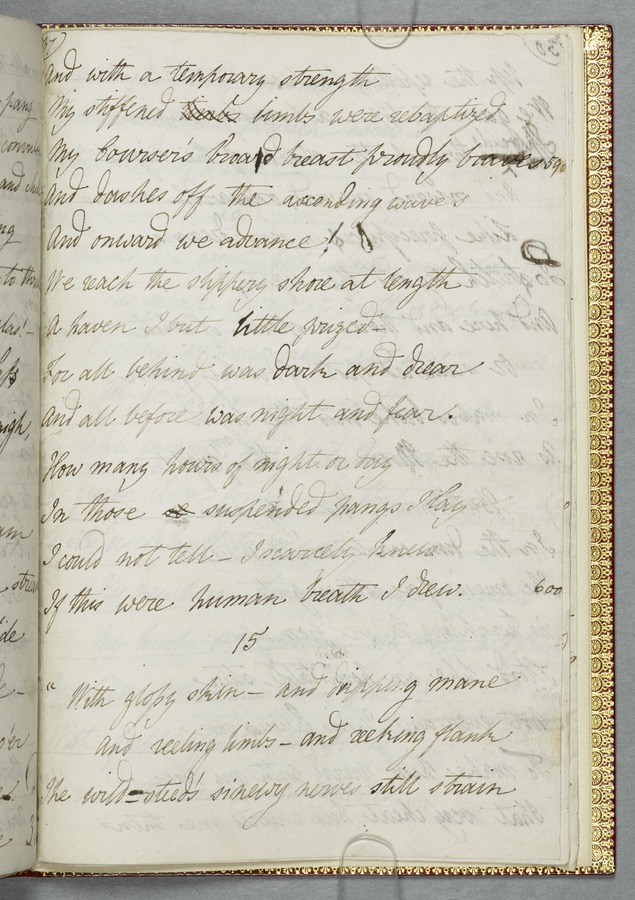 And with a temporary strength
My stiffened limbs limbs were rebaptized
My Courser's broad breast proudly braves 590
And dashes off the ascending waves
And onward we advance!
We reach the slippery shore at length
A haven I but little prized
For all behind was dark and drear
And all before was night and fear.
How many hours of night or day
In those suspended pangs I lay
I could not tell – I scarcely knew
If this were human breath I drew. 600
15
" With glossy skin – and dripping mane
And reeling limbs – and reeking flank
The wild-steed's sinewy nerves still strain